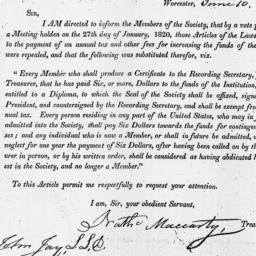 Worcester, June 10,
SIR,
I AM directed to inform the Members of the Society, that by a vote p
a Meeting holden on the 27th day of January, 1820, those Articles of the Laws
to the payment of an annual tax and other fees for increasing the funds of the
were repealed, and that the following was substituted therefor, viz.
"Every Member who shall produce a Certificate to the Recording Secretary,
Treasurer, that he has paid Six, or more, Dollars to the funds of the Institution,
entitled to a Diploma, to which the Seal of the Society shall be affixed, signe
President, and countersigned by the Recording Secretary, and shall be exempt from
nual tax. Every person residing in any part of the United States, who may in
admitted into the Society, shall pay Six Dollars towards the funds for contingen
ses; and any individual who is now a Member, or shall in future be admitted,
neglect for one year the payment of Six Dollars, after having been called on by th
urer in person, or by his written order, shall be considered as having abdicated h
est in the Society, and no longer a Member."
To this Article permit me respectfully to request your attention.
I am, Sir, your obedient Servant,
Nathl. Maccarty, Trea
John Jay, L.L.D.